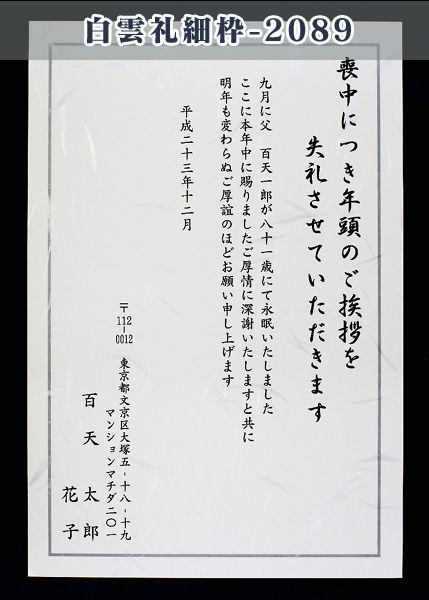 白雲礼細枠-2089
喪中につき年頭のご挨拶を
失礼させていただきます
九月に父　百天一郎が八十一歳にて永眠いたしました
ここに本年中に賜りましたご厚情に深謝いたしますと共に
明年も変わらぬご厚誼のほどお願い申し上げます
平成二十三年十二月
〒112-0012
東京都文京区大塚五-十八-十九
マンションマチダ二〇一
百天　太郎
花子